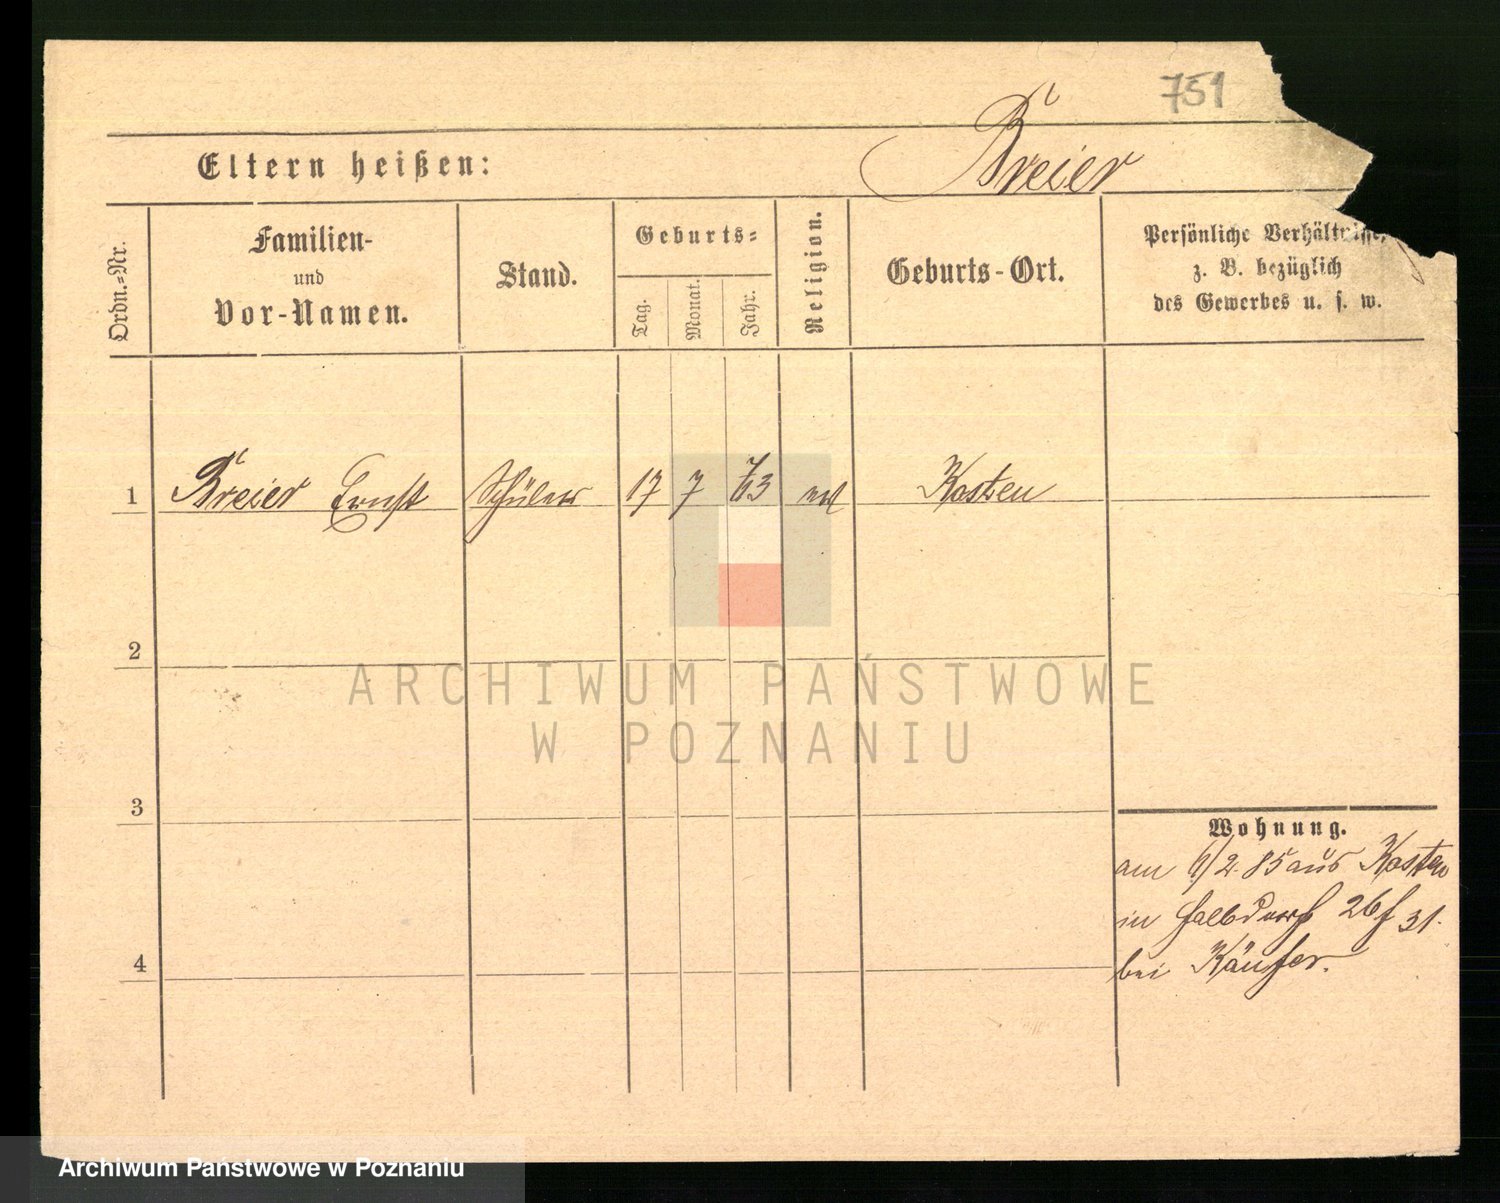 751
Eltern heißen: Breier
Ordn.-Nr.
Familien-
und
Vor-Namen.
Stand.
Geburts-
Tag.
Monat.
Jahr.
Religion.
Geburts-Ort.
Persönliche Verhältnisse,
z. B. bezüglich
des Gewerbes u. s. w.
1 Breier Ernst Schüler 17 7 73 Kosten
2
3
4
Wohnung.
am 2. 85 aus Kosten
in 31.
bei Käufer.
ARCHIWUM PAŃSTWOWE
W POZNANIU
Archiwum Państwowe w Poznaniu